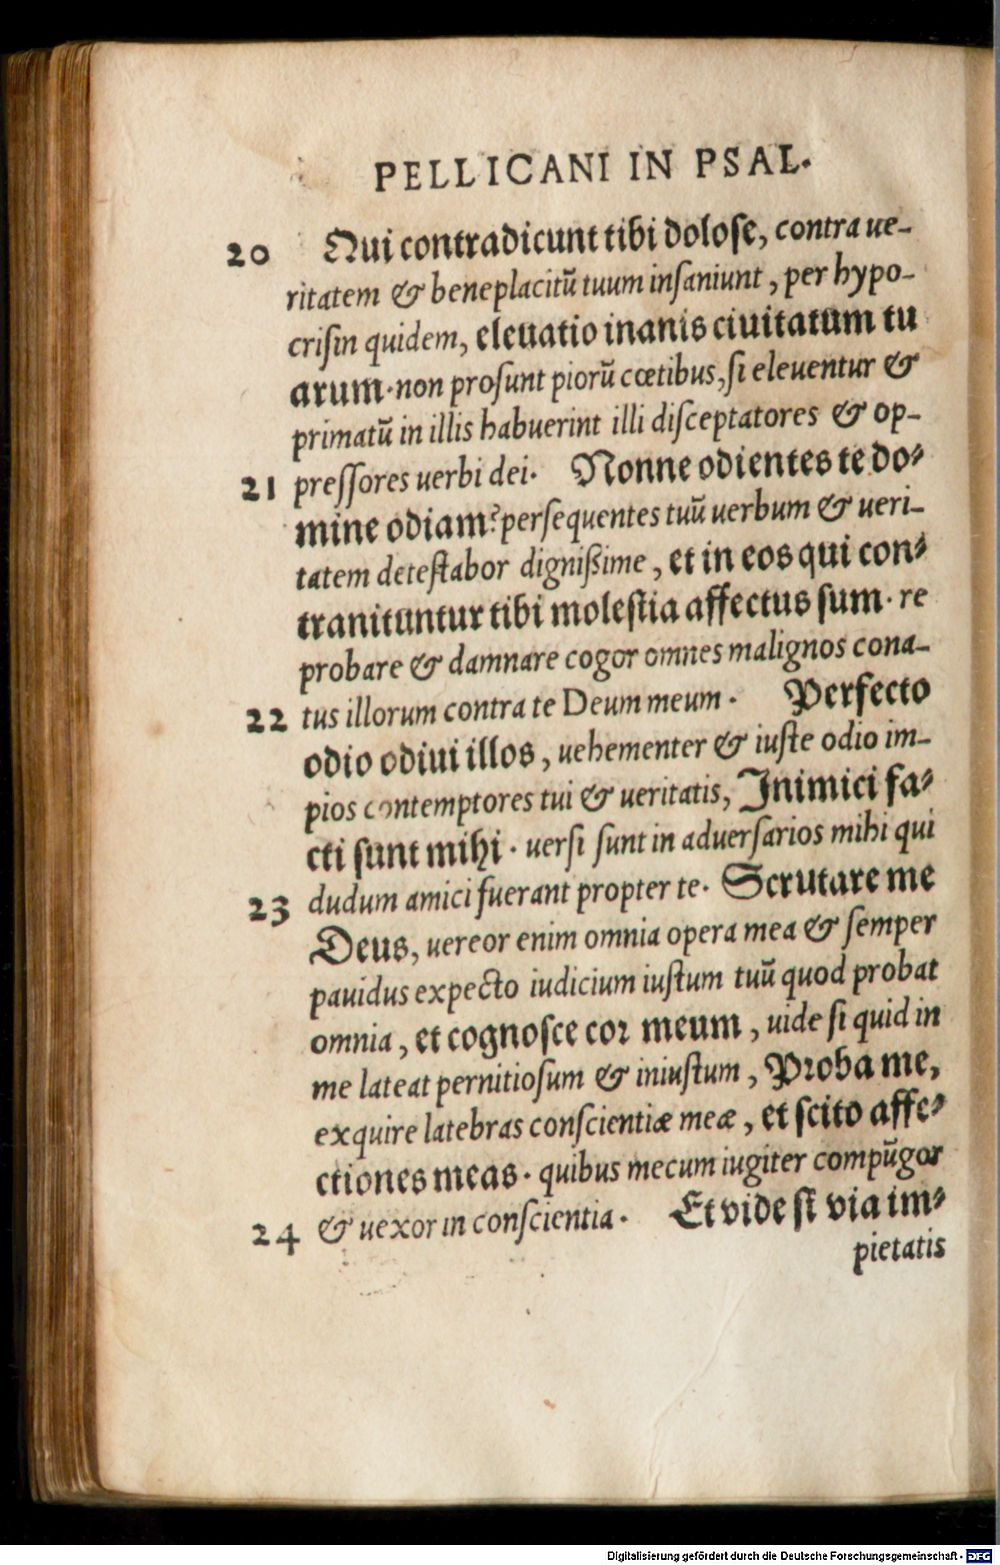 PELLICANI IN PSAL.
20 Qui contradicunt tibi dolose, contra ue-
ritatem & beneplacitũ tuum inſaniunt, per hypo-
criſin quidem, eleuatio inanis ciuitatum tu
arum. non proſunt piorũ cœtibus, ſi eleuentur &
primatũ in illis habuerint illi diſceptatores & op-
21 preſſores uerbi dei. Nonne odientes te do-
mine odiam? perſequentes tuũ uerbum & ueri-
tatem deteſtabor digniſsime, et in eos qui con-
tranituntur tibi moleſtia affectus ſum. re
probare & damnare cogor omnes malignos cona-
22 tus illorum contra te Deum meum. Perfecto
odio odiui illos, uehementer & iuſte odio im-
pios contemptores tui & ueritatis, Inimici fa-
cti ſunt mihi. uerſi ſunt in aduerſarios mihi qui
23 dudum amici fuerant propter te. Scrutare me
Deus, uereor enim omnia opera mea & ſemper
pauidus expecto iudicium iuſtum tuũ quod probat
omnia, et cognoſce cor meum, uide ſi quid in
me lateat pernitioſum & iniuſtum, Proba me,
exquire latebras conſcientiæ meæ, et ſcito affe-
ctiones meas. quibus mecum iugiter compũgor
24 & uexor in conſcientia. Et vide ſi via im-
pietatis
Digitalisierung gefördert durch die Deutsche Forschungsgemeinschaft - DFG